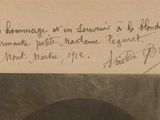 hommage et en souvenir à la blonde
charmante petite Madame
Mont Martre, 1918.